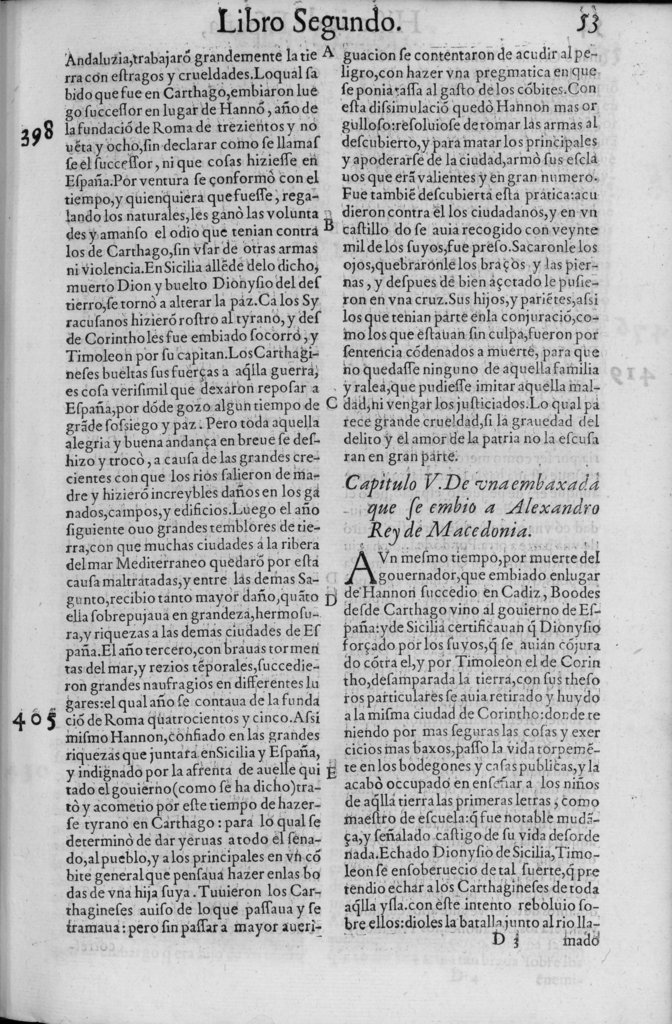 Libro Segundo.
53
Andaluzia,trabajarõ grandemente la tie
rra con eſtragos y crueldades.Lo qual ſa
bido que fue en Carthago,embiaron lue
go ſucceſſor en lugar de Hannõ, año de
398
la fundació de Roma de trezientos y no
uẽta y ocho,ſin declarar como ſe llamaſ
ſe el ſucceſſor, ni que coſas hizieſſe en
Eſpaña.Por ventura ſe conformò con el
tiempo,y quienquiera que fueſſe, rega-
lando los naturales,les ganò las volunta
des y amanſo el odio que tenian contra
los de Carthago,ſin vſar de otras armas
ni violencia.En Sicilia allẽde delo dicho,
muerto Dion y buelto Dionyſio del deſ
tierro,ſe tornò a alterar la paz.Ca los Sy
racuſanos hizierõ roſtro al tyrano, y deſ
de Corintho les fue embiado ſocorro, y
Timoleon por ſu capitan.Los Carthagi-
neſes bueltas ſus fuerças a aq̃lla guerra,
es coſa veriſimil que dexaron repoſar a
Eſpaña,por dõde gozo algun tiempo de
grãde ſoſsiego y paz. Pero toda aquella
alegria y buena andança en breue ſe deſ-
hizo y trocò, a cauſa de las grandes cre-
cientes con que los rios ſalieron de ma-
dre y hizierõ increybles daños en los ga
nados,campos,y edificios.Luego el año
ſiguiente ouo grandes temblores de tie-
rra,con que muchas ciudades a la ribera
del mar Mediterraneo quedarõ por eſta
cauſa maltratadas,y entre las demas Sa-
gunto,recibio tanto mayor daño,quãto
ella ſobrepujaua en grandeza,hermoſu-
ra,y riquezas a las demas ciudades de Eſ
paña.El año tercero,con brauas tormen
tas del mar,y rezios tẽporales,ſuccedie-
ron grandes naufragios en differentes lu
gares:el qual año ſe contaua de la funda
405
ciõ de Roma quatrocientos y cinco.Aſsi
miſmo Hannon,confiado en las grandes
riquezas que juntara enSicilia y Eſpaña,
y indignado por la afrenta de auelle qui
tado el gouierno(como ſe ha dicho)tra-
tò y acometio por eſte tiempo de hazer-
ſe tyrano en Carthago: para lo qual ſe
determinò de dar yeruas a todo el ſena-
do,al pueblo,y a los principales en vn cõ
bite general que penſaua hazer enlas bo
das de vna hija ſuya. Tuuieron los Car-
thagineſes auiſo de lo que paſſaua y ſe
tramaua: pero ſin paſſar a mayor aueri-
A
B
C
D
E
guacion ſe contentaron de acudir al pe-
ligro,con hazer vna pregmatica en que
ſe ponia taſſa al gaſto de los cõbites.Con
eſta diſsimulació quedò Hannon mas or
gulloſo:reſoluioſe de tomar las armas al
deſcubierto,y para matar los principales
y apoderarſe de la ciudad,armò ſus eſcla
uos que erã valientes y en gran numero.
Fue tambiẽ deſcubierta eſta pratica:acu
dieron contra el los ciudadanos,y en vn
caſtillo do ſe auia recogido con veynte
mil de los ſuyos,fue preſo.Sacaronle los
ojos,quebraronle los braços y las pier-
nas, y deſpues de bien açotado le puſie-
ron en vna cruz.Sus hijos,y pariẽtes,aſsi
los que tenian parte enla conjuraciõ,co-
mo los que eſtauan ſin culpa,fueron por
ſentencia cõdenados a muerte, para que
no quedaſſe ninguno de aquella familia
y ralea,que pudieſſe imitar aquella mal-
dad,ni vengar los juſticiados.Lo qual pa
rece grande crueldad,ſi la grauedad del
delito y el amor de la patria no la eſcuſa
ran en gran parte.
Capitulo V.De vna embaxada
que ſe embio a Alexandro
Rey de Macedonia.
AVn meſmo tiempo,por muerte del
gouernador,que embiado en lugar
de Hannon ſuccedio en Cadiz, Boodes
deſde Carthago vino al gouierno de Eſ-
paña:y de Sicilia certificauan q̃ Dionyſio
forçado por los ſuyos,q̃ ſe auiãn cõjura
do cõtra el,y por Timoleon el de Corin
tho,deſamparada la tierra,con ſus theſo
ros particulares ſe auia retirado y huydo
a la miſma ciudad de Corintho:donde te
niendo por mas ſeguras las coſas y exer
cicios mas baxos,paſſo la vida torpemẽ-
te en los bodegones y caſas publicas,y la
acabò occupado en enſeñar a los niños
de aq̃lla tierra las primeras letras, como
maeſtro de eſcuela:q̃ fue notable mudã-
ça,y ſeñalado caſtigo de ſu vida deſorde
nada.Echado Dionyſio de Sicilia,Timo-
leon ſe enſoberuecio de tal ſuerte,q̃ pre
tendio echar a los Carthagineſes de toda
aq̃lla yſla.con eſte intento reboluio ſo-
bre ellos:dioles la batalla junto al rio lla-
D 3
mado